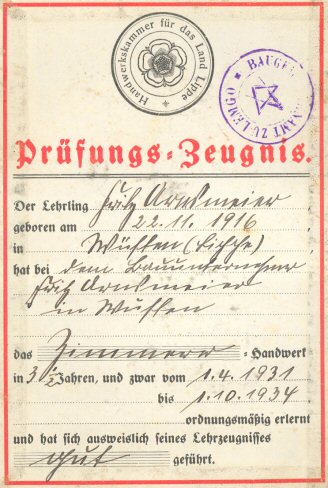 Handwerkskammer für das Land Lippe
BAUGE AMT ZU LEMGO
Prüfungs-Zeugnis.
Der Lehrling Fritz Arnsmeier,
geboren am 22.11.1916,
in Wüsten (Lippe),
hat bei dem Bauunternehmer
Fritz Arnsmeier
in Wüsten
das Zimmerer-Handwerk
in 3 1/2 Jahren, und zwar vom 1.4.1931
bis 1.10.1934
ordnungsmäßig erlernt
und hat sich ausweislich seines Lehrzeugnisses
gut geführt.